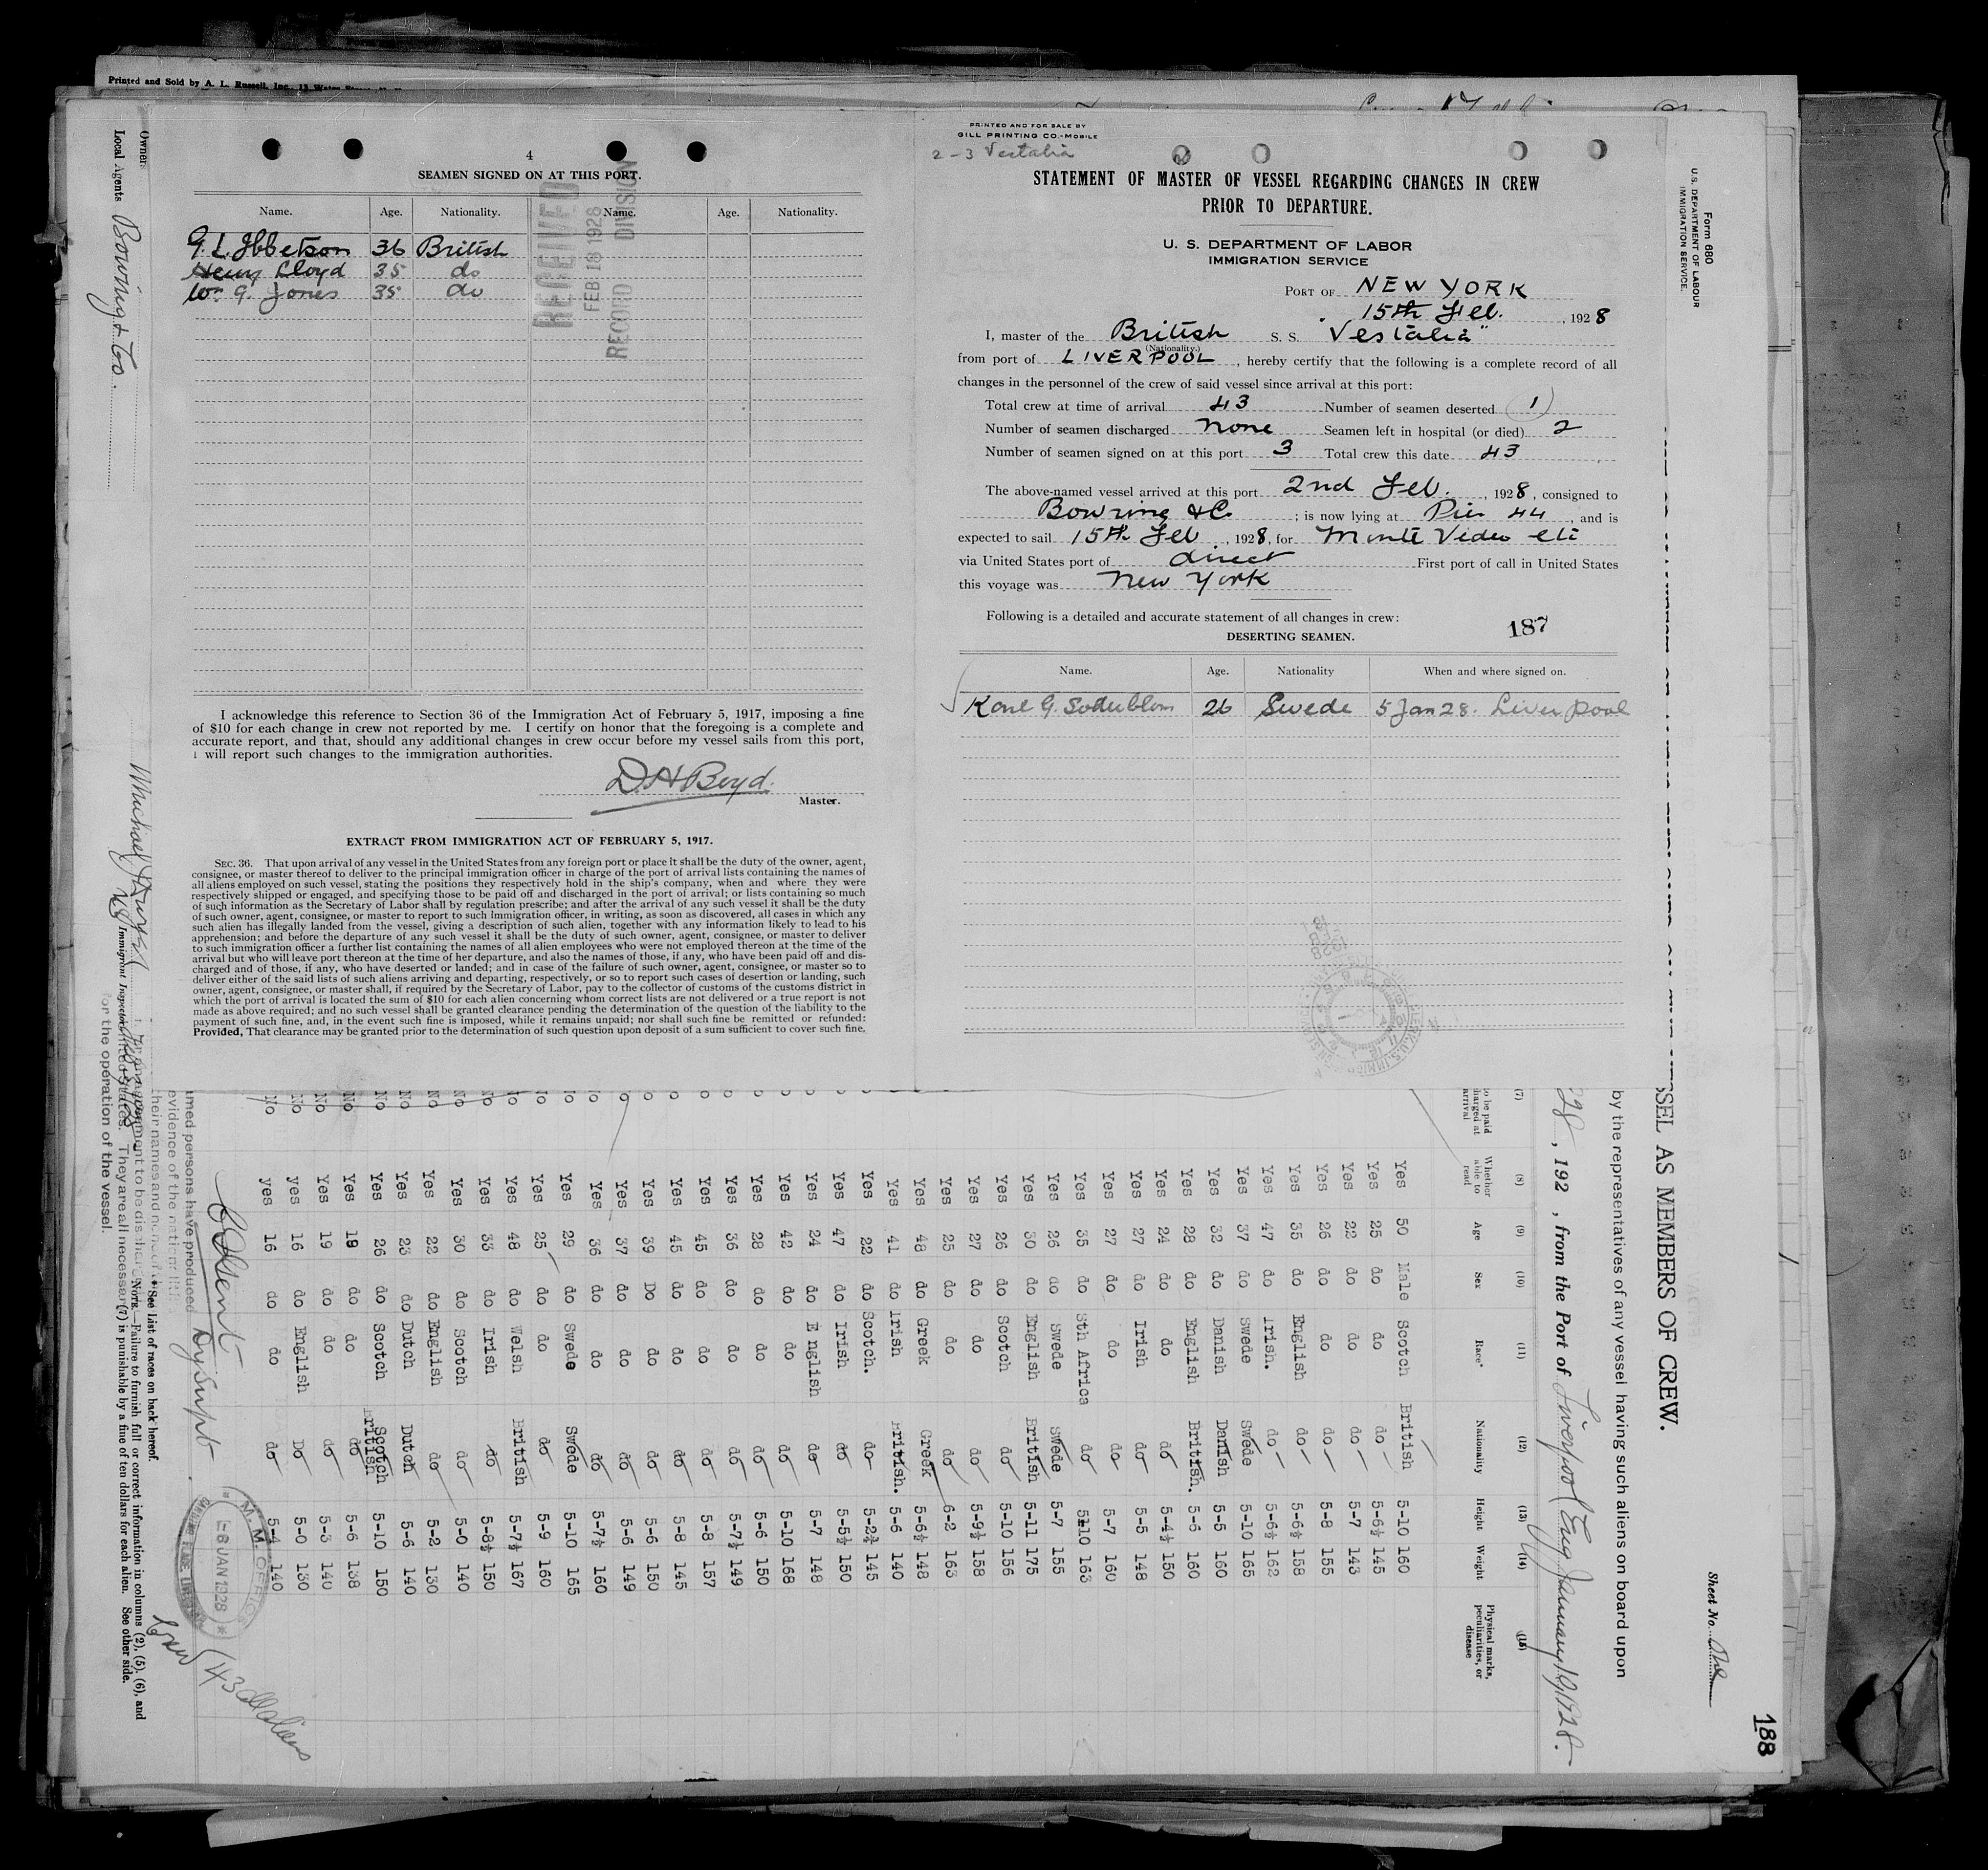 Printed and Sold by A. L. Russell, Inc.,
4
SEAMEN SIGNED ON AT THIS PORT.
Name. Age. Nationality. Name. Age. Nationality.
G. L. Ibbetson 36 British
Henry Lloyd 35 do
Wm. G. Jones 35 do
RECEIVED
FEB 18 1928
RECORD DIVISION
I acknowledge this reference to Section 36 of the Immigration Act of February 5, 1917, imposing a fine
of $10 for each change in crew not reported by me. I certify on honor that the foregoing is a complete and
accurate report, and that, should any additional changes in crew occur before my vessel sails from this port,
I will report such changes to the immigration authorities.
D. H. Boyd.
Master.
EXTRACT FROM IMMIGRATION ACT OF FEBRUARY 5, 1917.
SEC. 36. That upon arrival of any vessel in the United States from any foreign port or place it shall be the duty of the owner, agent,
consignee, or master thereof to deliver to the principal immigration officer in charge of the port of arrival lists containing the names of
all aliens employed on such vessel, stating the positions they respectively hold in the ship's company, when and where they were
respectively shipped or engaged, and specifying those to be paid off and discharged in the port of arrival; or lists containing so much
of such information as the Secretary of Labor shall by regulation prescribe; and after the arrival of any such vessel it shall be the duty
of such owner, agent, consignee, or master to report to such Immigration officer, in writing, as soon as discovered, all cases in which any
such alien has illegally landed from the vessel, giving a description of such alien, together with any information likely to lead to his
apprehension; and before the departure of any such vessel it shall be the duty of such owner, agent, consignee, or master to deliver
to such immigration officer a further list containing the names of all alien employees who were not employed thereon at the time of the
arrival but who will leave port thereon at the time of her departure, and also the names of those, if any, who have been paid off and dis-
charged and of those, if any, who have deserted or landed; and in case of the failure of such owner, agent, consignee, or master so to
deliver either of the said lists of such aliens arriving and departing, respectively, or so to report such cases of desertion or landing, such
owner, agent, consignee, or master shall, if required by the Secretary of Labor, pay to the collector of customs of the customs district in
which the port of arrival is located the sum of $10 for each alien concerning whom correct lists are not delivered or a true report is not
made as above required; and no such vessel shall be granted clearance pending the determination of the question of the liability to the
payment of such fine, and, in the event such fine is imposed, while it remains unpaid; nor shall such fine be remitted or refunded:
Provided, That clearance may be granted prior to the determination of such question upon deposit of a sum sufficient to cover such fine.
PRINTED AND FOR SALE BY
GILL PRINTING CO.-MOBILE
2-3 Vestalia
STATEMENT OF MASTER OF VESSEL REGARDING CHANGES IN CREW
PRIOR TO DEPARTURE.
U. S. DEPARTMENT OF LABOR
IMMIGRATION SERVICE
PORT OF NEW YORK
15th Feb. , 1928
I, master of the British S. S. Vestalia"
(Nationality.)
from port of LIVERPOOL , hereby certify that the following is a complete record of all
changes in the personnel of the crew of said vessel since arrival at this port:
Total crew at time of arrival 43 Number of seamen deserted (1)
Number of seamen discharged None Seamen left in hospital (or died) 2
Number of seamen signed on at this port 3 Total crew this date 43
The above-named vessel arrived at this port 2nd Feb. , 1928, consigned to
Bowring & Co ; is now lying at Pier 44 , and is
expected to sail 15th Feb , 1928, for Monte Video etc
via United States port of direct First port of call in United States
this voyage was New York
Following is a detailed and accurate statement of all changes in crew:
187
DESERTING SEAMEN.
Name. Age. Nationality When and where signed on.
Karl G. Soderblom 26 Swede 5 Jan 28. Liverpool
Form 680
U.S. DEPARTMENT OF LABOUR
IMMIGRATION SERVICE.
SSEL AS MEMBERS OF CREW.
by the representatives of any vessel having such aliens on board upon
28, 192 , from the Port of Liverpool Eng January 19, 1928.
Sheet No. One
188
(7) (8) (9) (10) (11) (12) (13) (14) (15)
to be paid
charged at
arrival
Whether
able to
read
Age Sex Race* Nationality Height Weight
Physical marks,
peculiarities, or
disease
Yes 50 Male Scotch British 5-10 160
Yes 25 do do do 5-6½ 145
Yes 22 do do do 5-7 143
Yes 26 do do do 5-8 155
Yes 35 do English do 5-6½ 158
Yes 47 do Irish. do 5-6½ 162
Yes 37 do Swede Swede 5-10 165
Yes 32 do Danish Danish 5-5 160
Yes 28 do English British. 5-6 160
Yes 24 do do do 5-4½ 150
Yes 27 do Irish do 5-5 148
Yes 27 do do do 5-7 160
Yes 35 do Sth Africa do 5-10 163
Yes 26 do Swede Swede 5-7 155
Yes 30 do English British 5-11 175
Yes 26 do Scotch do 5-10 156
Yes 27 do do do 5-9½ 158
Yes 25 do do do 6-2 163
Yes 48 do Greek Greek 5-6½ 148
Yes 41 do Irish British. 5-6 140
Yes 22 do Scotch. do 5-2¾ 145
Yes 47 do Irish do 5-5½ 150
Yes 24 do E nglish do 5-7 148
Yes 42 do do do 5-10 168
Yes 28 do do do 5-6 150
Yes 36 do do do 5-7½ 149
Yes 45 do do do 5-8 157
Yes 45 do do do 5-8 145
Yes 39 Do do do 5-6 150
Yes 37 do do do 5-6 149
Yes 36 do do do 5-7½ 160
Yes 29 do Swede Swede 5-10 165
Yes 25 do do do 5-9 160
Yes 48 do Welsh British 5-7½ 167
Yes 33 do Irish do 5-8½ 150
Yes 30 do Scotch do 5-0 140
Yes 22 do English do 5-2 130
No Yes 23 do Dutch Dutch 5-6 140
No Yes 26 do Scotch Scotch British 5-10 150
No Yes 18 do do do 5-6 138
No Yes 19 do do do 5-3 140
No yes 16 do English Do 5-0 130
No yes 16 do do do 5-4 140
Owners
Local Agents Bowring & Co.
Immigrant Inspector
*See List of races on back hereof.
NOTE.—Failure to furnish full or correct information in columns (2), (5), (6), and
(7) is punishable by a fine of ten dollars for each alien. See other side.
med persons have produced
evidence of the nationality
their names and
to be discharged
They are all necessary
for the operation of the vessel.
Dy Supt
M. M. OFFICE
-6 JAN 1928
Crew
(43 all aliens